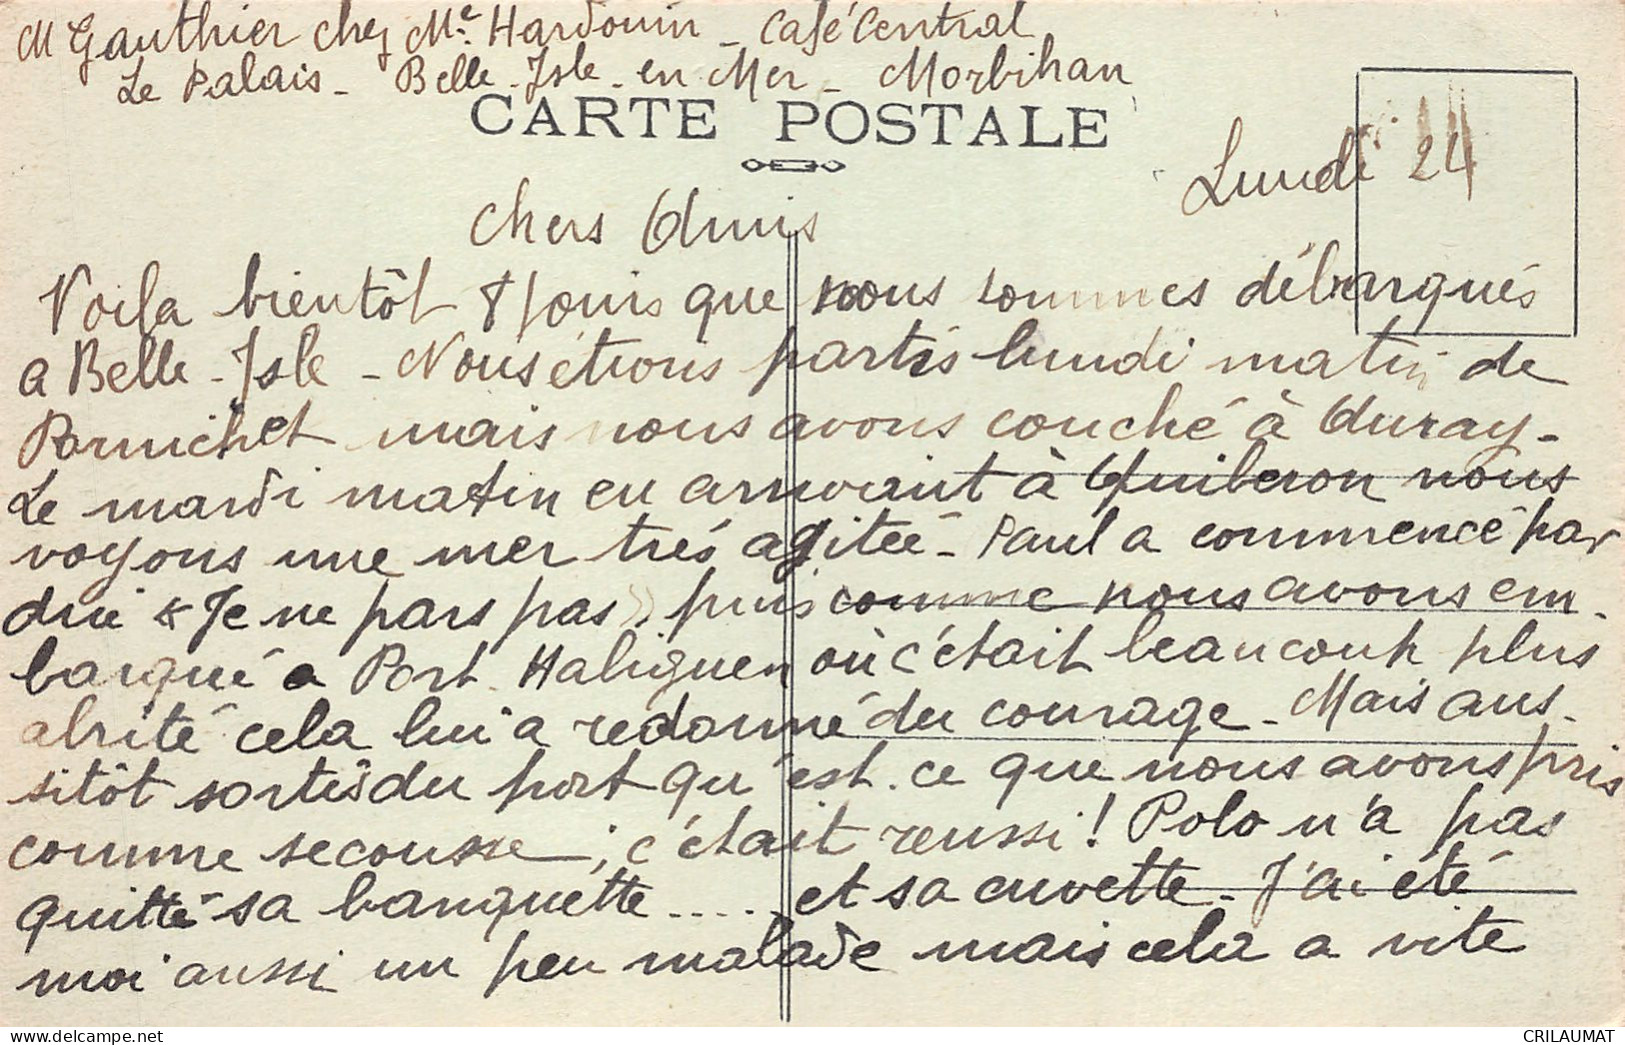 M Gauthier chez Me. Hardouin _ Café Central
Le Palais _ Belle _ Isle _ en Mer _ Morbihan
CARTE POSTALE
Lundi 24
Chers Amis
Voila bientôt 8 jours que nous sommes débarqués
a Belle _ Isle _ Nous étions partis lundi matin de
Pornichet mais nous avons couché à Auray _
Le mardi matin en arrivant à Quiberon nous
voyons une mer très agitée _ Paul a commencé par
dire « Je ne pars pas » puis comme nous avons em_
barqué a Port Haliguen où c'était beaucoup plus
abrité cela lui a redonné du courage _ Mais aus_
sitôt sortis du port qu'est. ce que nous avons pris
comme secousse ; c'était reussi ! Polo n'a pas
quitté sa banquette ..... et sa cuvette _ J'ai été
moi aussi un peu malade mais cela a vite
www.delcampe.net
CRILAUMAT